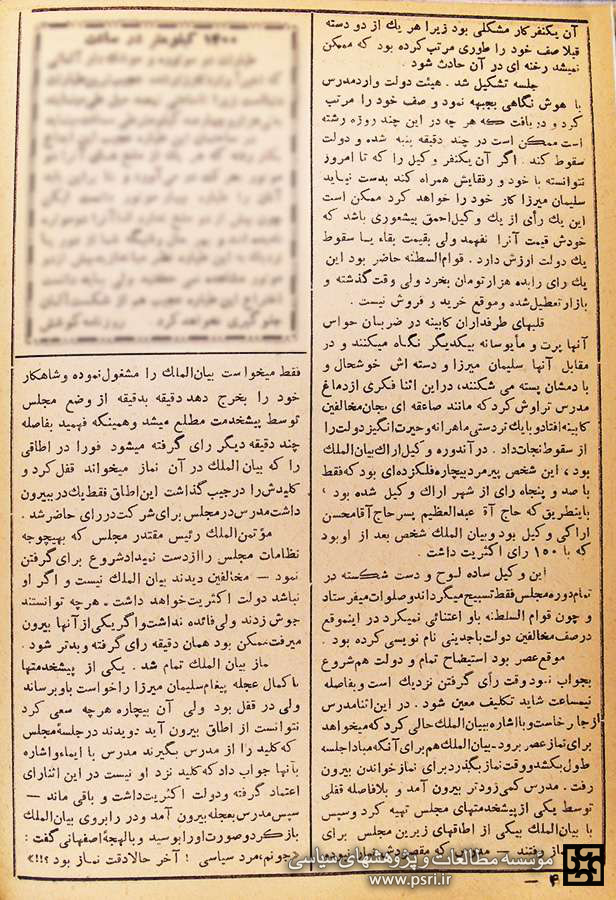 آن یکنفر کار مشکلی بود زیرا هر یك از دو دسته
قبلا صف خود را طوری مرتب کرده بود که ممکن
نمیشد رخنه ای در آن حادث شود .
جلسه تشکیل شد . هیئت دولت وارد مدرس
با هوش نگاهی بجبهه نمود و صف خود را مرتب
کرد و دریافت که هر چه در این چند روزه رشته
است ممکن است در چند دقیقه پنبه شده و دولت
سقوط کند . اگر آن یکنفر وکیل را که تا امروز
نتوانسته با خود و رفقایش همراه کند بدست نیاید
سلیمان میرزا کار خود را خواهد کرد ممکن است
این یك رأی از یك وکیل احمق بیشعوری باشد که
خودش قیمت آنرا نفهمد ولی بقیمت بقاء یا سقوط
یك دولت ارزش دارد . قوام السطنه حاضر بود این
یك رای را بده هزار تومان بخرد ولی وقت گذشته و
بازار تعطیل شده و موقع خرید و فروش نیست .
قلبهای طرفداران کابینه در ضربان حواس
آنها پرت و مأیوسانه بیکدیگر نگاه میکنند و در
مقابل آنها سلیمان میرزا و دسته اش خوشحال و
با دمشان پسته می شکنند، در این اثنا فکری از دماغ
مدرس تراوش کرد که مانند صاعقه ای بجان مخالفین
کابینه افتاد و با یك تردستی ماهرانه و حیرت انگیز دولت را
از سقوط نجات داد . در آندوره وکیل اراك بیان الملك
بود ، این شخص پیر مرد بیچاره فلکزده‌ای بود که فقط
با صد و پنجاه رای از شهر اراك وکیل شده بود ،
باینطریق که حاج آقا عبدالعظیم پسر حاج آقا محسن
اراکی وکیل بود و بیان الملك شخص بعد از او بود
که با ۱۵۰ رای اکثریت داشت .
این وکیل ساده لوح و دست شکسته در
تمام دوره مجلس فقط تسبیح میگرداند و صلوات میفرستاد
و چون قوام السلطنه باو اعتنائی نمیکرد در اینموقع
در صف مخالفین دولت باجدینی نام نویسی کرده بود .
موقع عصر بود استیضاح تمام و دولت هم شروع
بجواب نمود وقت رأی گرفتن نزدیك است و بفاصله
نیمساعت شاید تکلیف معین شود . در این اثنا مدرس
از جا برخاست و با اشاره ببیان الملك حالی کرد که میخواهد
برای نماز عصر برود - بیان الملك هم برای آنکه مبادا جلسه
طول بکشد و وقت نماز بگذرد برای نماز خواندن بیرون
رفت . مدرس کمی زودتر بیرون آمد و بلافاصله قفلی
توسط یکی از پیشخدمتهای مجلس تهیه کرد و سپس
با بیان الملك بیکی از اطاقهای زیرین مجلس برای
نماز رفتند — مدرس که مقصودش نماز نبود و
فقط میخواست بیان الملك را مشغول نموده و شاهکار
خود را بخرج دهد دقیقه بدقیقه از وضع مجلس
توسط پیشخدمت مطلع میشد و همینکه فهمید بفاصله
چند دقیقه دیگر رای گرفته میشود فورا در اطاقی
را که بیان الملك در آن نماز میخواند قفل کرد و
کلیدش را در جیب گذاشت این اطاق فقط یك در بیرون
داشت مدرس در مجلس برای شرکت در رای حاضر شد .
مؤتمن الملك رئیس مقتدر مجلس که بهیچوجه
نظامات مجلس را از دست نمیداد شروع برای گرفتن
نمود — مخالفین دیدند بیان الملك نیست و اگر او
نباشد دولت اکثریت خواهد داشت . هرچه توانستند
جوش زدند ولی فائده نداشت و اگر یکی از آنها بیرون
میرفت ممکن بود همان دقیقه رای گرفته و بدتر شود .
نماز بیان الملك تمام شد . یکی از پیشخدمتها
با کمال عجله پیغام سلیمان میرزا را خواست باو برساند
ولی در قفل بود ولی آن بیچاره هرچه سعی کرد
نتوانست از اطاق بیرون آید دویدند در جلسه مجلس
که کلید را از مدرس بگیرند مدرس با ایماء و اشاره
بآنها جواب داد که کلید نزد او نیست در این اثنا رای
اعتماد گرفته و دولت اکثریت داشت و باقی ماند —
سپس مدرس بعجله بیرون آمد و در را بروی بیان الملك
باز کرد و صورت او را بوسید و با لهجهٔ اصفهانی گفت :
«جونم، مرد سیاسی ! آخر حالا وقت نماز بود ؟!!»
مؤسسه مطالعات و پژوهشهای سیاسی
www.psri.ir
— ۴